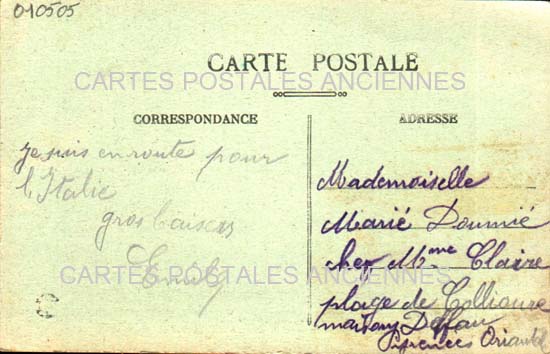 010505
CARTE POSTALE
CARTES POSTALES ANCIENNES
CORRESPONDANCE
ADRESSE
Je suis en route pour
l'Italie
gros baisers
Emily
Mademoiselle
Marie Doumié
chez Mme Claire
plage de Collioure
maison
Pyrénées Orientales
CARTES POSTALES ANCIENNES